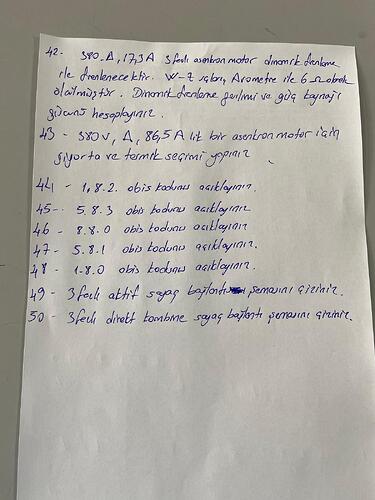 42- 380.Δ, 17,3A 3 fazlı asenkron motor dinamik frenleme
ile frenlenecektir. W-Z sargısı, Avometre ile 6 Ω olarak
ölçülmüştür. Dinamik frenleme gerilimi ve güç kaynağı
gücünü hesaplayınız.
43- 380V, Δ, 86,5A lık bir asenkron motor için
sigorta ve termik seçimi yapınız
44- 1.8.2. obis kodunu açıklayınız.
45- 5.8.3 obis kodunu açıklayınız
46- 8.8.0 obis kodunu açıklayınız
47- 5.8.1 obis kodunu açıklayınız.
48- 1.8.0 obis kodunu açıklayınız.
49- 3 fazlı aktif sayaç bağlantı şemasını çiziniz.
50- 3 fazlı direkt kombine sayaç bağlantı şemasını çiziniz.